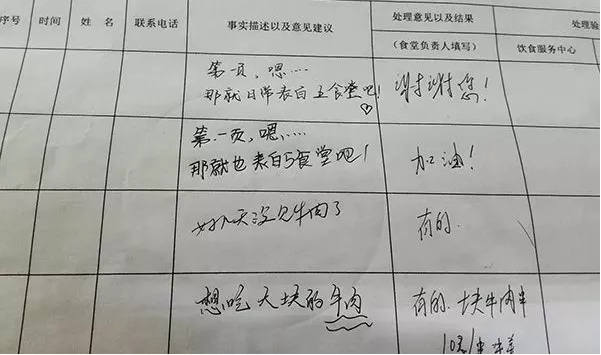 序号 时间 姓名 联系电话 事实描述以及意见建议 处理意见以及结果 处理验
(食堂负责人填写) 饮食服务中心
第一页，嗯……
那就日常表白五食堂吧！♡
谢谢您！
第一页，嗯……
那就也表白5食堂吧！
加油！
好几天没见牛肉了
有的.
想吃大块的牛肉
有的. 块牛肉